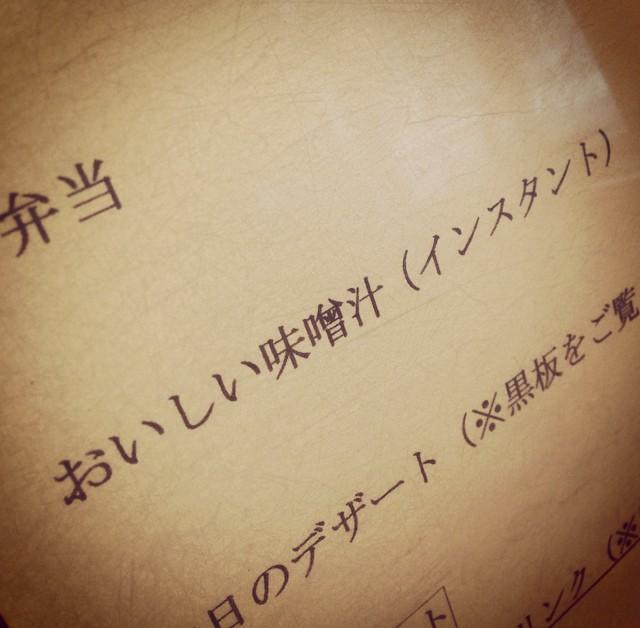 弁当
おいしい味噌汁（インスタント）
日のデザート（※黒板をご覧
ト
リンク（※